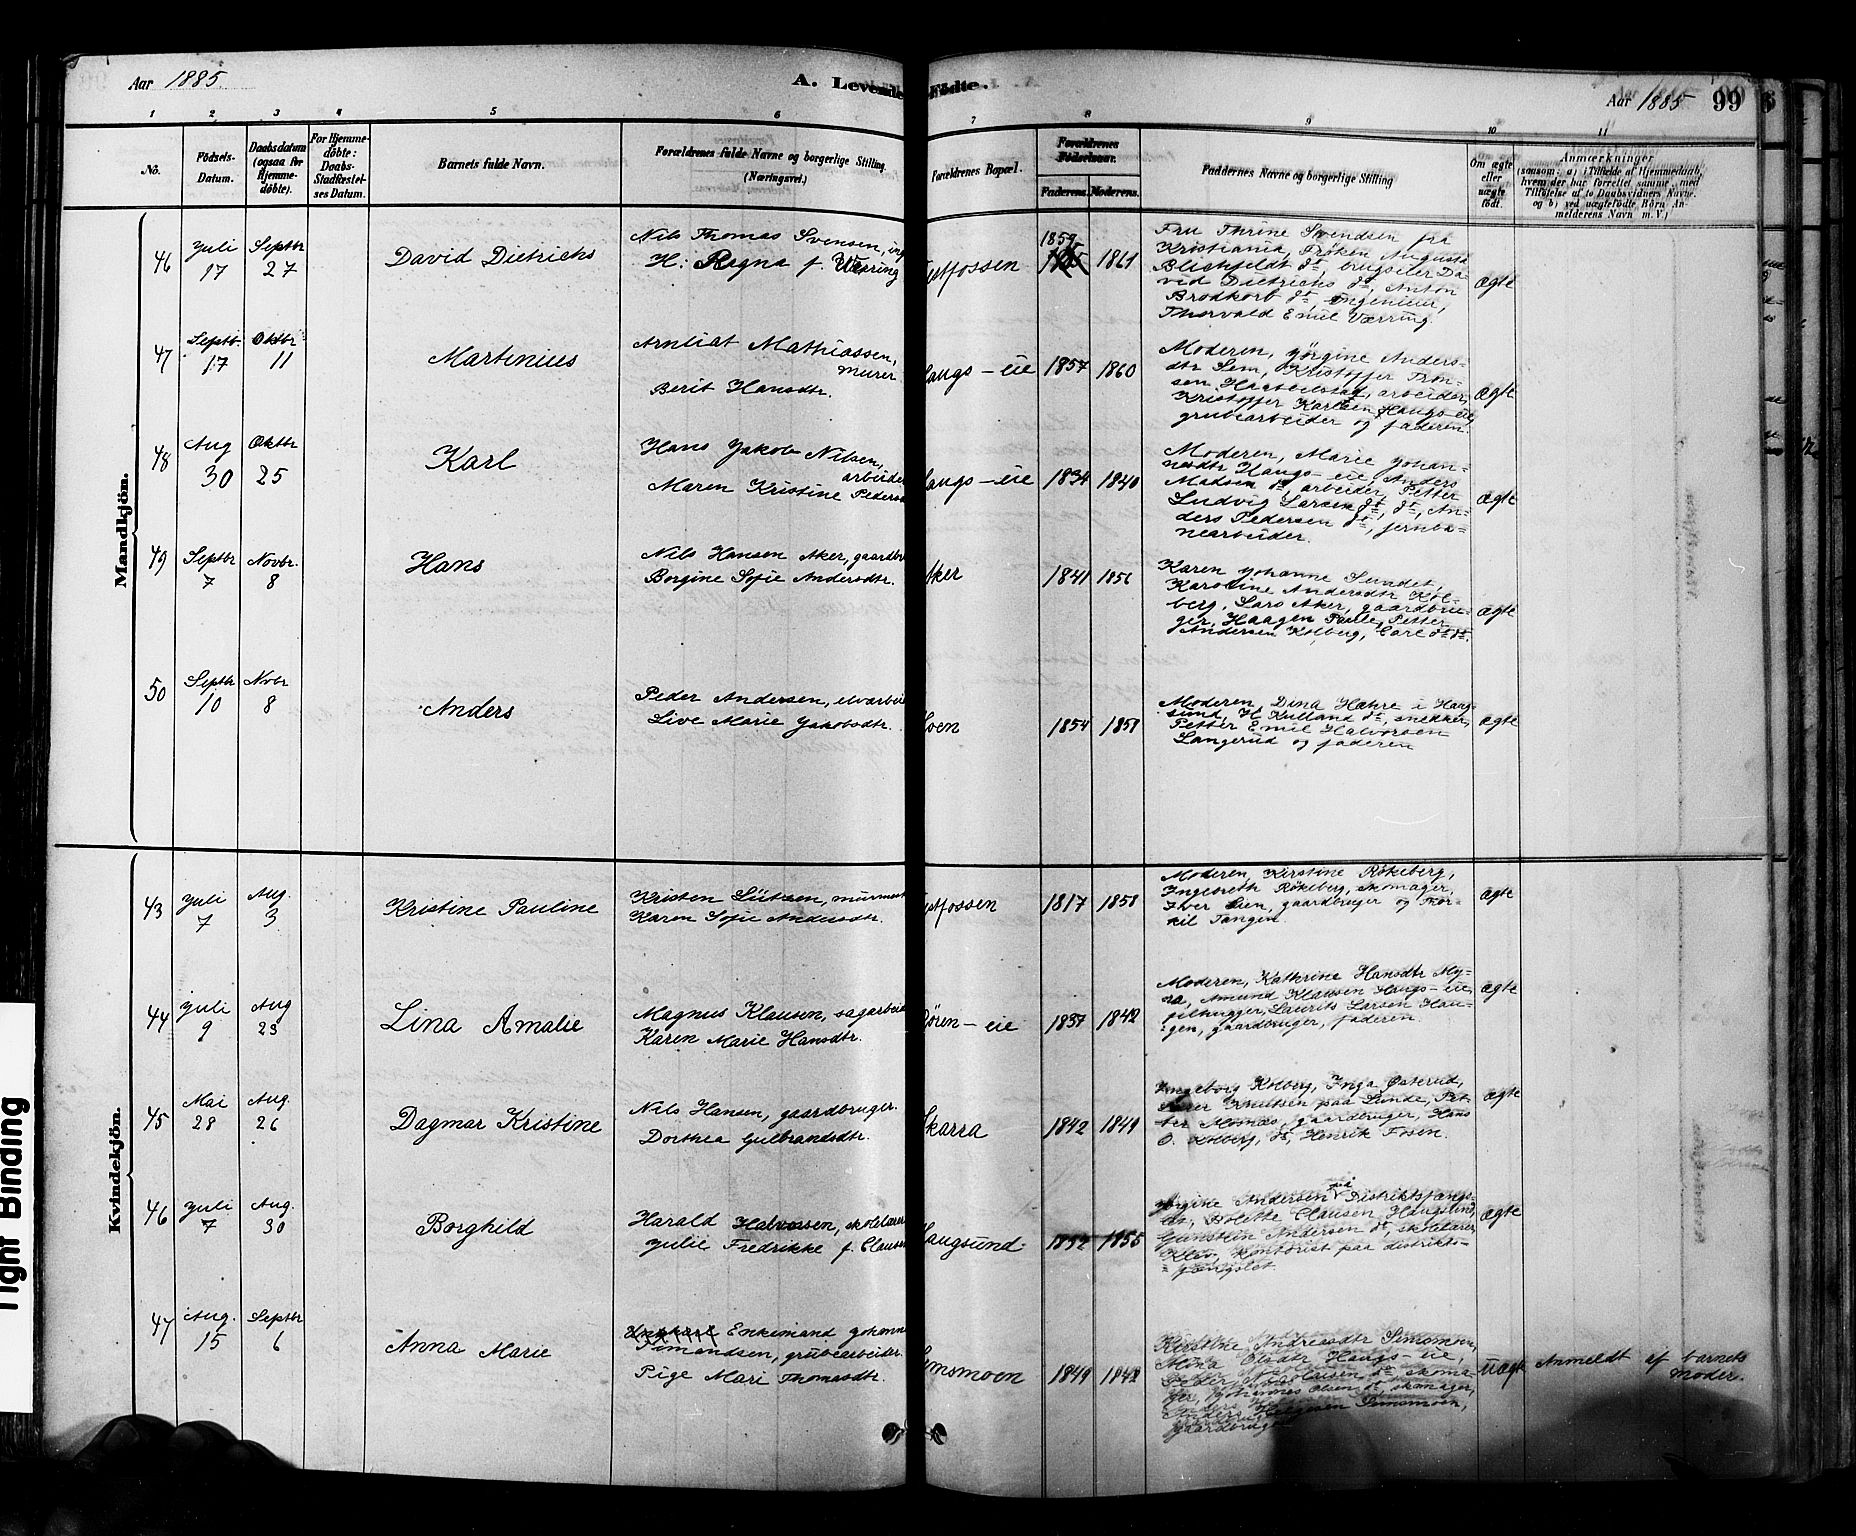 Aar 1885.
A. Levende Fødte.
Aar 1885
99
1 2 3 4 5 6 7 8 9 10 11
No.
Fødsels-
Datum.
Daabsdatum
(ogsaa for
Hjemme-
døbte).
For Hjemme-
døbte:
Daabs-
Stadfæstel-
ses Datum.
Barnets fulde Navn.
Forældrenes fulde Navne og borgerlige Stilling.
(Næringsvei.)
Forældrenes Bopæl.
Forældrenes
Fødselsaar.
Faderens. Moderens.
Faddernes Navne og borgerlige Stilling
Om ægte
eller
uægte
født.
Anmærkninger
(saasom: a) i Tilfælde af Hjemmedaab,
hvem der har forrettet samme, med
Tilføielse af to Daabsvidners Navne,
og b) ved uægtefødte Børn An-
melderens Navn m. V.)
Mandkjøn.
46
Juli
17
Septbr
27
David Dietrichs
Nils Thomas Svensen, ing
H: Ragna f. Wærring
1859
1861
Fru Thrine Svendsen fra
Kristiania, Frøken Augusta
Blichfeldt dt, brugseier Da-
vid Dietrichs dt, Anton
Brodkorb dt, ingenieur,
Thorvald Emil Værring.
ægte
47
Septb.
17
Oktbr
11
Martinius
Mathiassen,
murer
Berit Hansdtr.
augs - eie
1857
1860
Moderen, Jørgine Anders-
dtr Sem, Kristoffer Tron-
sen arbeider,
Kristoffer Karlsen Haugs-eie,
grubearbeider og faderen.
ægte
48
Aug
30
Oktbr
25
Karl
Hans Jakob Nilsen,
arbeider
Maren Kristine Peders
augs - eie
1834
1840
Moderen, Marie Johan-
nesdtr Haugs-eie, Anders
Madsen dt, arbeider, Petter
Ludvig Larsen dt, dt, An-
ders Pedersen dt, jernba-
nearbeider.
ægte
49
Septbr
7
Novbr.
8
Hans
Nils Hansen Aker, gaardbr
Borgine Sofie Andersdtr.
Aker
1841
1856
Karen Johanne
Karoline Andersdtr Kol-
berg, Lars Aker, gaardbru-
ger, Haagen Petter
Andersen Kolberg, Carl dt dt.
ægte
50
Septbr
10
Novbr
8
Anders
Peder Andersen, elvarbei
Live Marie Jakobsdtr.
oen
1854
1858
Moderen, Dina Hæhre i Haug-
sund, H. Kulland dt, snekker,
Petter Emil Halvorsen
Langerud og faderen
ægte
Kvindekjøn.
43
Juli
7
Aug.
3
Kristine Pauline
Kristen murmest
Karen Sofie Andersdtr.
stfossen
1817
1858
Moderen, Kirstine Røkeberg,
Ingebreth Røkeberg, skomager,
Iver Lien, gaardbruger og Tor-
kil Tangen.
ægte
44
Juli
9
Aug
23
Lina Amalie
Magnus Klausen, sagarbeid
Karen Marie Hansdtr.
øren - eie
1837
1842
Moderen, Kathrine Hansdtr My-
ra, Amund Klausen Haugs-eie,
filhugger, Laurits Larsen Hau-
gen, gaardbruger, faderen.
ægte
45
Mai
28
Aug.
26
Dagmar Kristine
Nils Hansen, gaardbruger.
Dorthea Gulbrandsdtr.
Skarra
1842
1849
Ingeborg Kolberg, Inga Østerud,
Knutsen paa Lunde, Pet-
ter gaardbruger, Hans
O. Kolberg, dt, Henrik Fosen.
ægte
46
Juli
7
Aug.
30
Borghild
Harald Halvorsen, skolelærer
Julie Fredrikke f. Clausen
Haugsund
1852
1855
Jørgine Andersen på Distriktsfængs-
let, Clausen Haugsund,
Andersen dt, skolelærer
Klev, Kontorist paa distrikts-
fængslet
ægte
47
Aug.
15
Septbr
6
Anna Marie
Enkemand Johan
Simensen, grubearbeider.
Pige Mari Thomasdtr.
msmoen
1849
1842
Kirstine Andreasdtr Simsmoen,
Olsdtr Haugs-eie,
Peder Nicolaisen, dt, skoma-
ger, Johannes Olsen dt, skomager,
Anders Helgesen Simsmoen,
gaardbruger
uægte
Anmeldt af barnets
moder.
Tight Binding